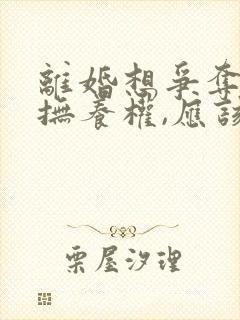 離婚想爭奪
撫養權,應該
栗屋汐理